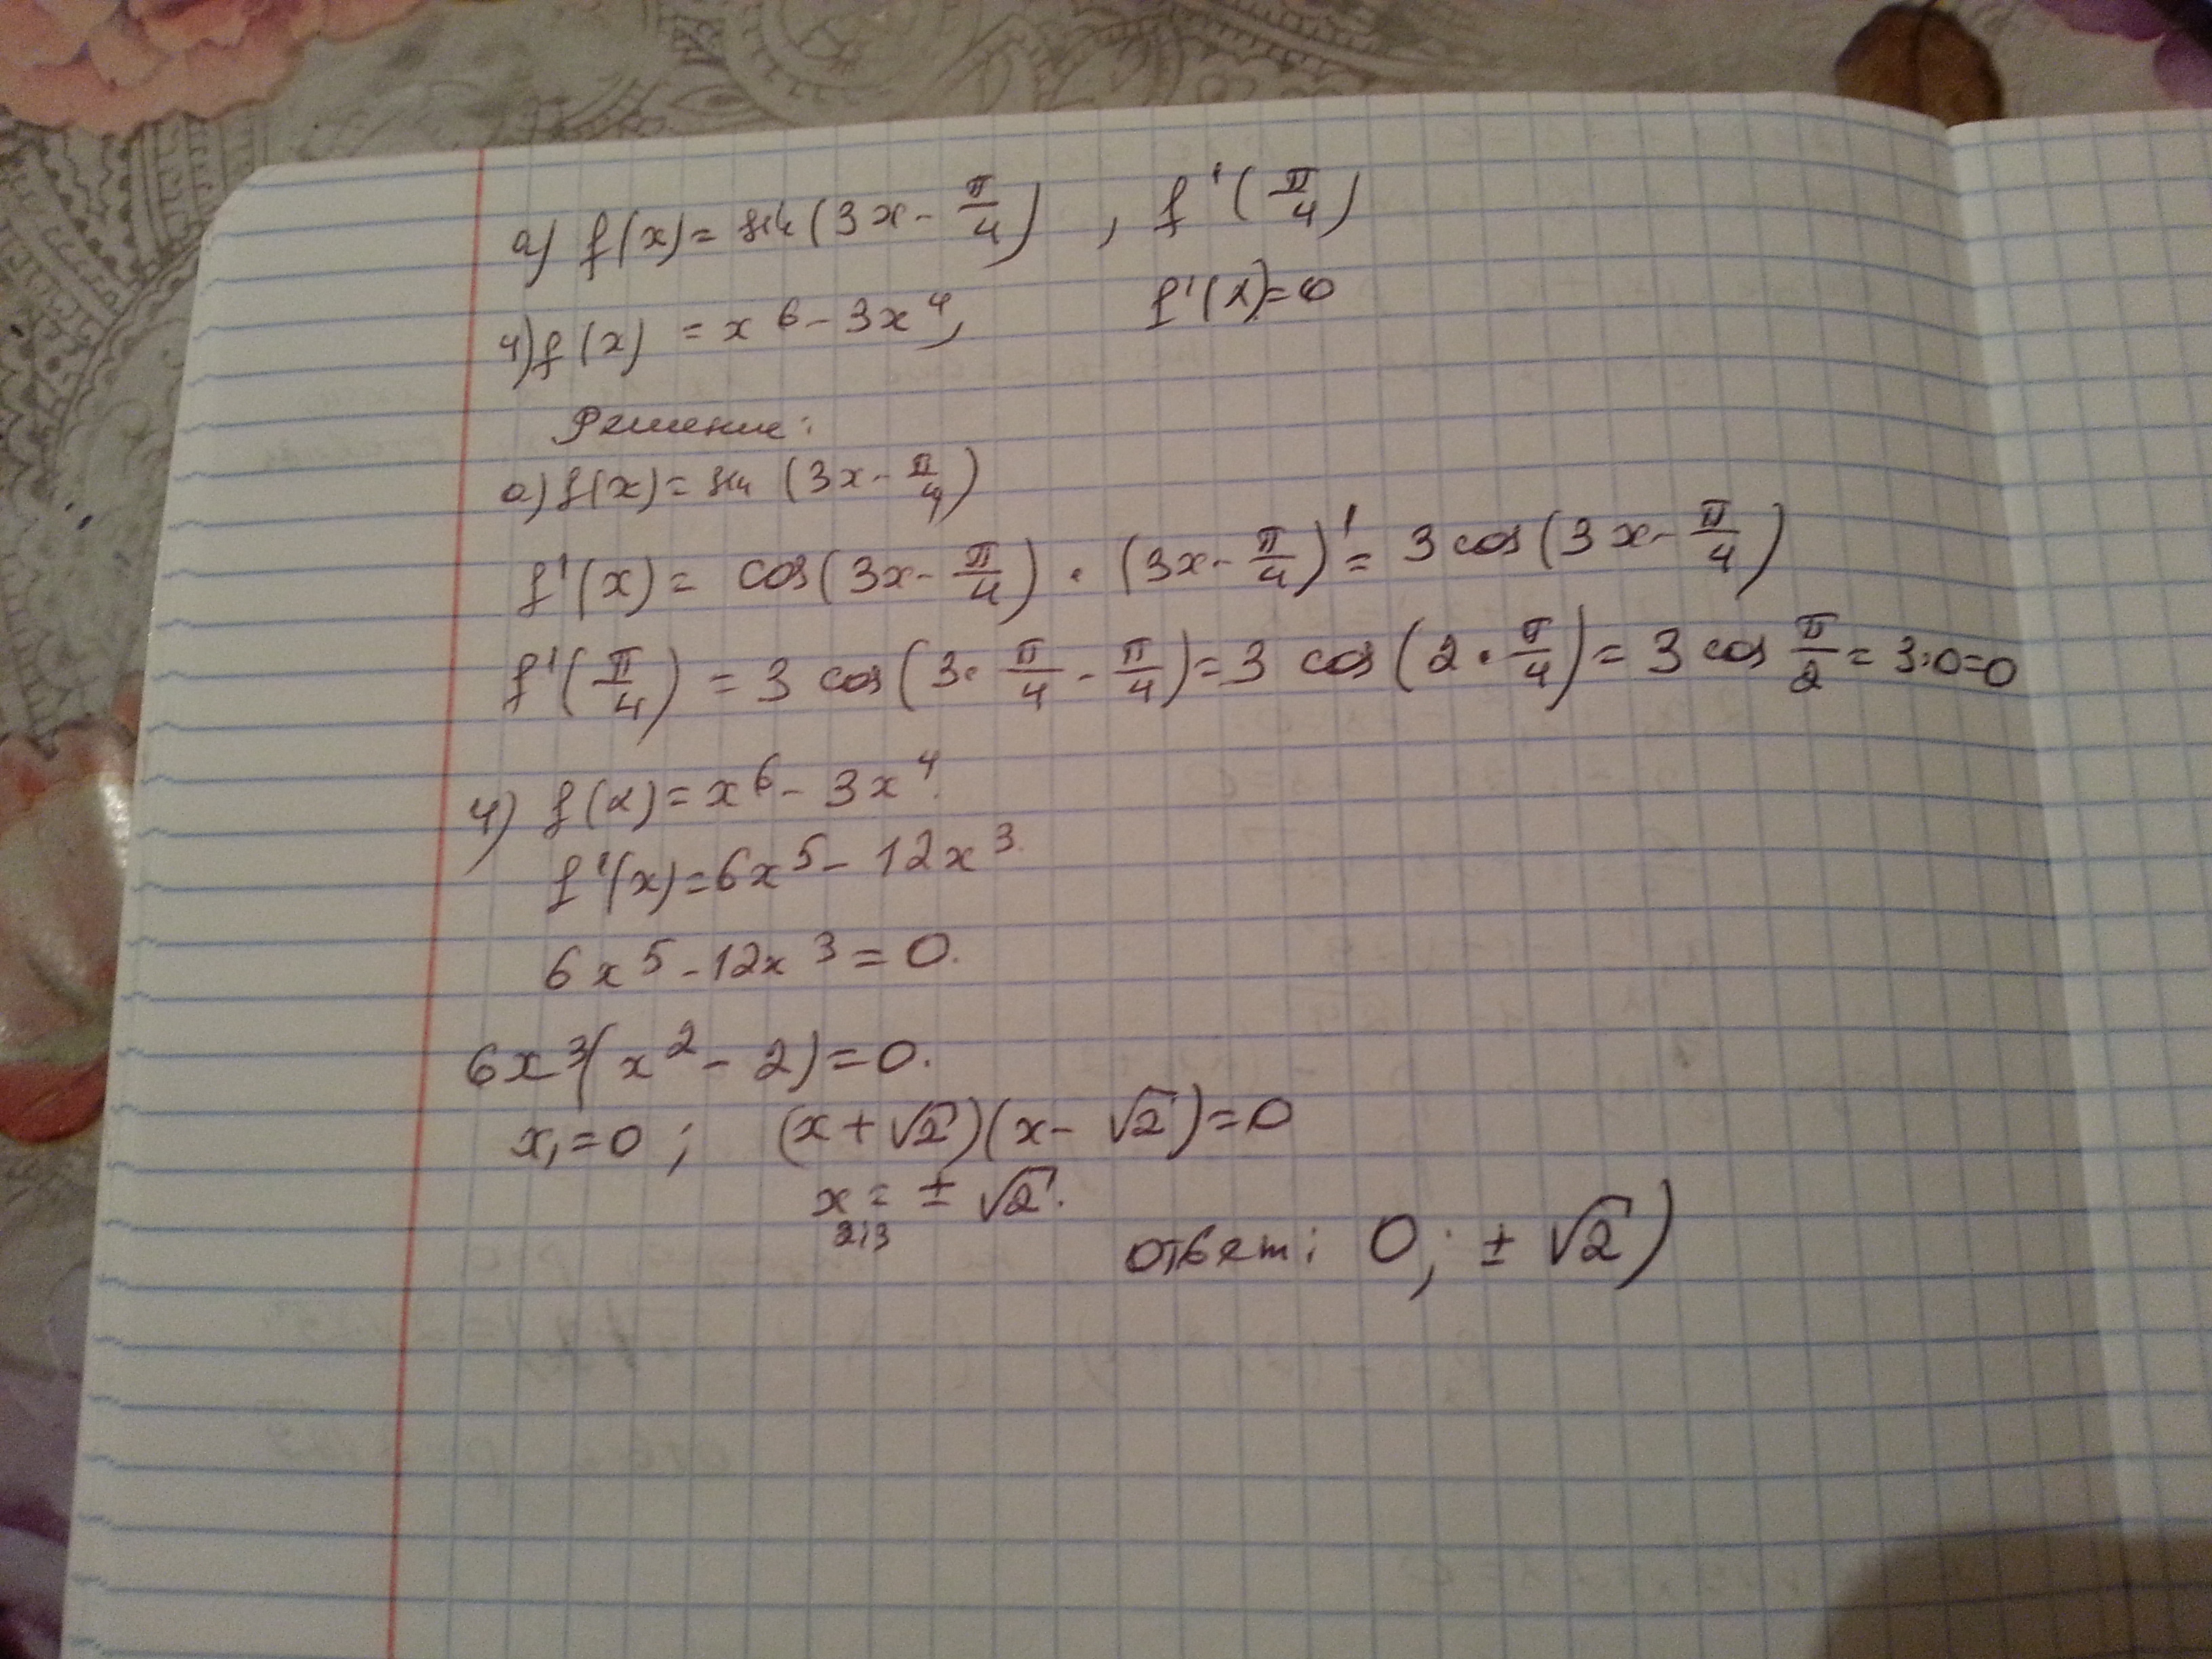 а) f(x) = sin(3x - π/4) , f'(π/4)
4) f(x) = x⁶ - 3x⁴, f'(x) = 0
Решение:
а) f(x) = sin (3x - π/4)
f'(x) = cos(3x - π/4) · (3x - π/4)' = 3 cos(3x - π/4)
f'(π/4) = 3 cos(3· π/4 - π/4) = 3 cos(2 · π/4) = 3 cos π/2 = 3·0=0
4) f(x) = x⁶ - 3x⁴.
f'(x) = 6x⁵ - 12x³.
6x⁵ - 12x³ = 0.
6x³(x² - 2) = 0.
x₁ = 0 ; (x + √2)(x - √2) = 0
x₂;₃ = ± √2.
ответ: 0; ± √2)